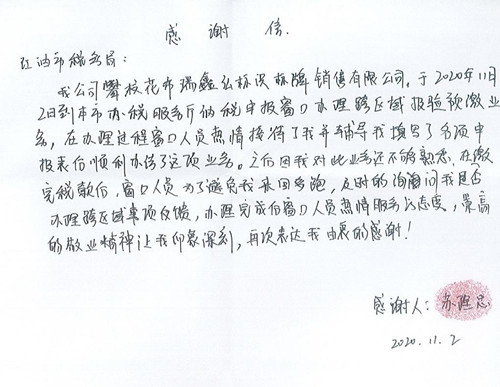 感谢信
江油市税务局:
我公司攀枝花市瑞鑫弘标识标牌销售有限公司。于2020年11月
2日到本市办税服务厅纳税申报窗口办理跨区域报验预缴业
务,在办理过程窗口人员热情接待了我并辅导我填写了各项申
报表后顺利办结了这项业务。之后因我对此业务还不够熟悉,在缴
完税款后,窗口人员为了避免我来回多跑,及时的询问我是否
办理跨区域事项反馈,办理完成后窗口人员热情服务的态度,崇高
的敬业精神让我印象深刻,再次表达我由衷的感谢!
感谢人:
2020.11.2